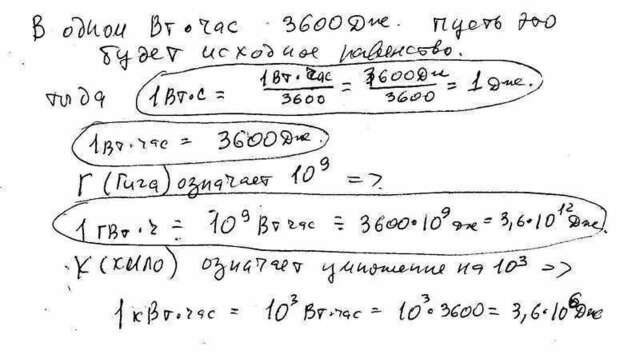 В одном Вт·час 3600 Дж. пусть это
будет исходное равенство.
тогда 1 Вт·с = 1 Вт·час / 3600 = 3600 Дж / 3600 = 1 Дж.
1 Вт·час = 3600 Дж.
Г (Гига) означает 10⁹ =>
1 ГВт·ч = 10⁹ Вт час = 3600·10⁹ Дж = 3,6·10¹² Дж.
К (кило) означает умножение на 10³ =>
1 кВт·час = 10³ Вт·час = 10³·3600 = 3,6·10⁶ Дж